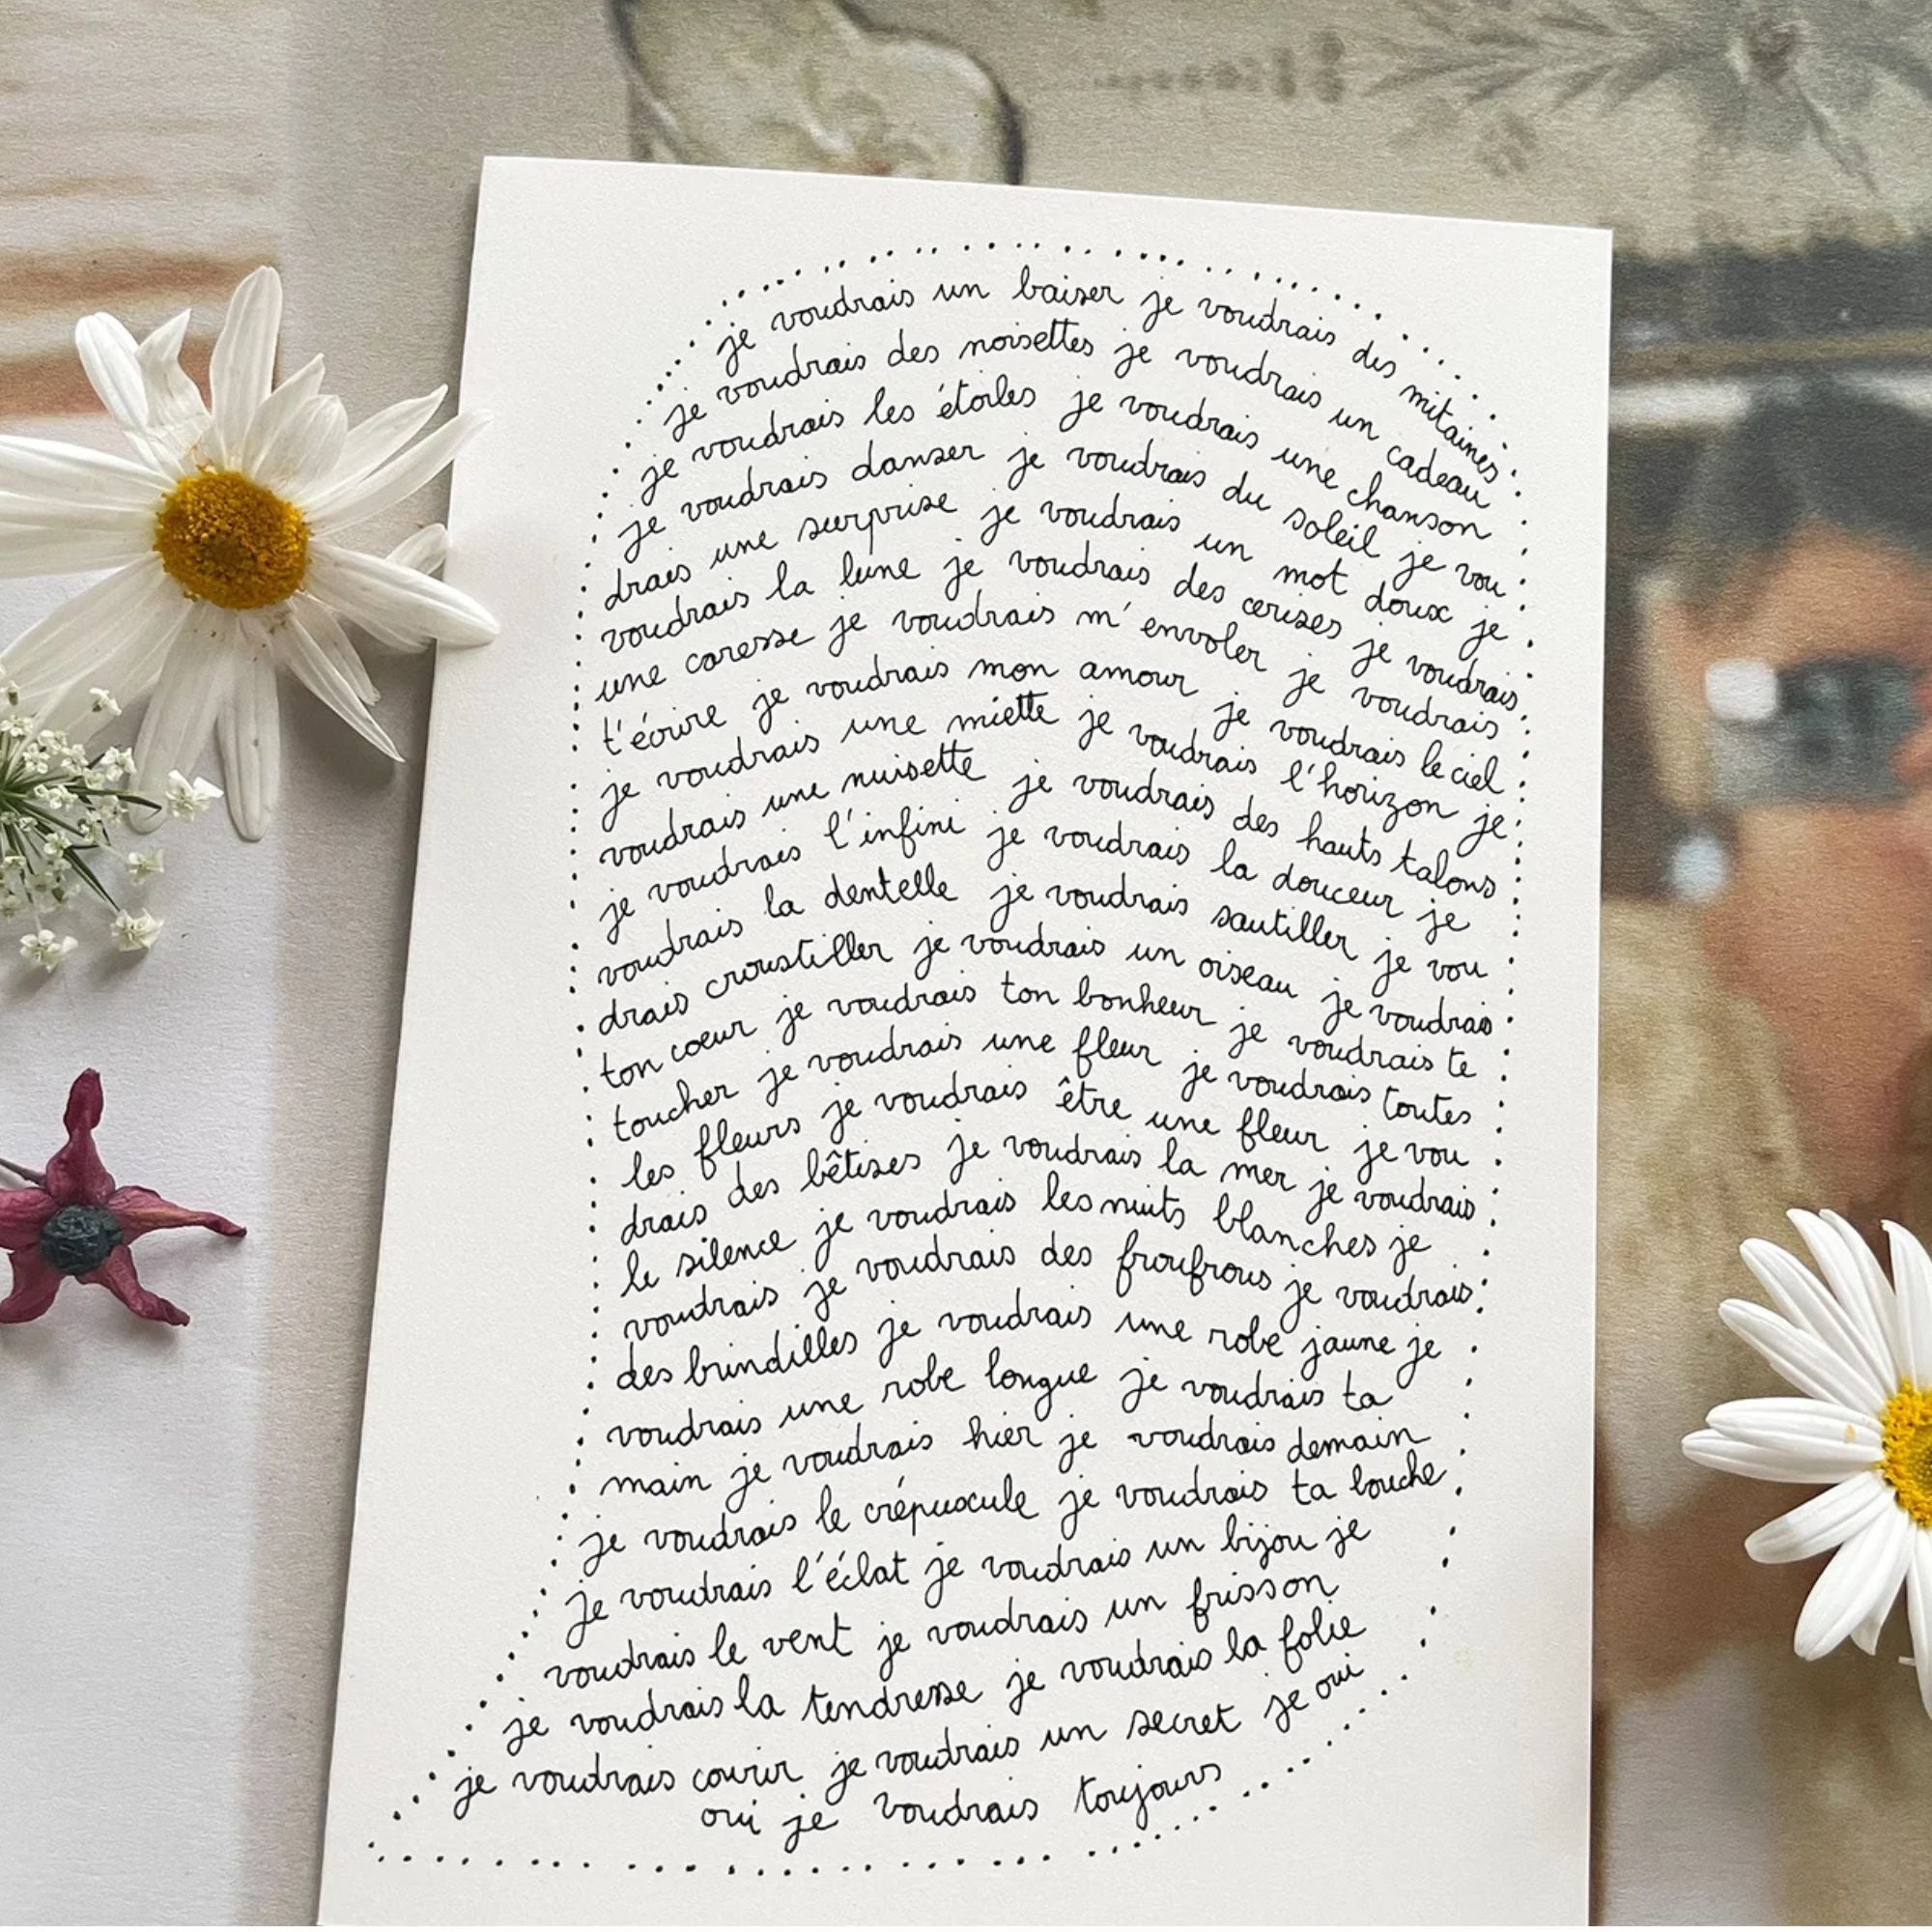 je voudrais un baiser je voudrais des mitaines
je voudrais des noisettes je voudrais un cadeau
je voudrais les étoiles je voudrais une chanson
je voudrais danser je voudrais du soleil je vou
drais une surprise je voudrais un mot doux je
voudrais la lune je voudrais des cerises je voudrais
une caresse je voudrais m'envoler je voudrais
t'écrire je voudrais mon amour je voudrais le ciel
je voudrais une miette je voudrais l'horizon je
voudrais une nuisette je voudrais des hauts talons
je voudrais l'infini je voudrais la douceur je
voudrais la dentelle je voudrais sautiller je vou
drais croustiller je voudrais un oiseau je voudrais
ton coeur je voudrais ton bonheur je voudrais te
toucher je voudrais une fleur je voudrais toutes
les fleurs je voudrais être une fleur je vou
drais des bêtises je voudrais la mer je voudrais
le silence je voudrais les nuits blanches je
voudrais je voudrais des froufrous je voudrais
des brindilles je voudrais une robe jaune je
voudrais une robe longue je voudrais ta
main je voudrais hier je voudrais demain
je voudrais le crépuscule je voudrais ta bouche
je voudrais l'éclat je voudrais un bijou je
voudrais le vent je voudrais un frisson
je voudrais la tendresse je voudrais la folie
je voudrais courir je voudrais un secret je oui
oui je voudrais toujours